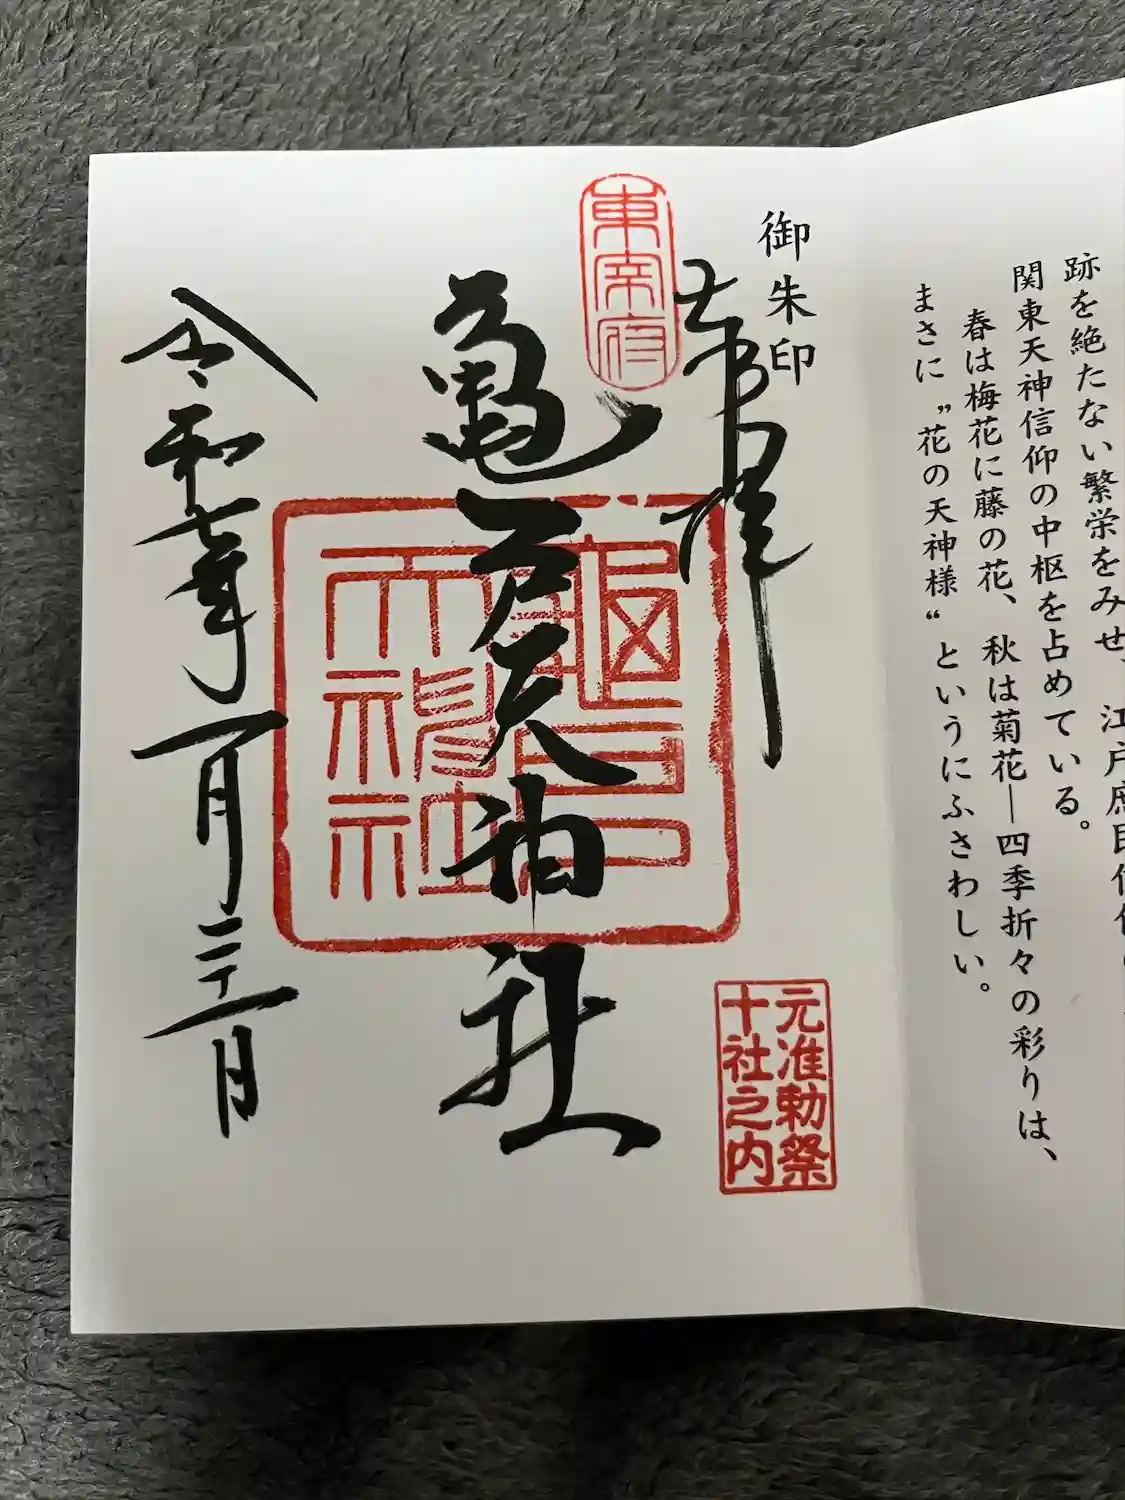 跡を絶たない繁栄をみせ、江戸庶民信
関東天神信仰の中枢を占めている。
春は梅花に藤の花、秋は菊花―四季折々の彩りは、
まさに〝花の天神様〟というにふさわしい。
御朱印
奉拝
東宰府
亀戸天神社
龜戸
天神社
元准勅祭
十社之内
令和七年一月二十一日